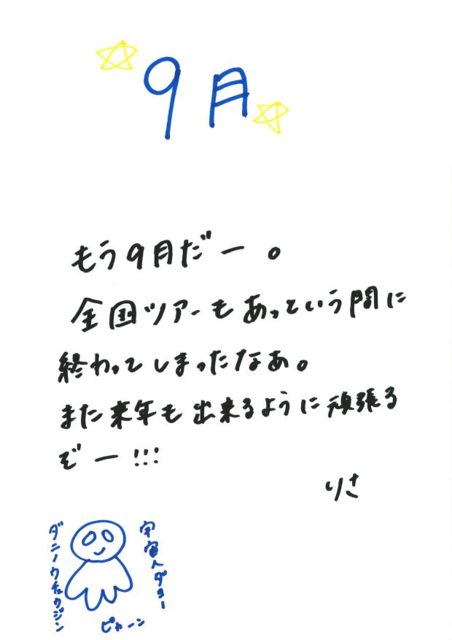 9月
もう9月だー。
全国ツアーもあっという間に
終わってしまったなあ。
また来年も出来るように頑張る
ぞー!!!
りさ
宇宙人ダヨー
ピカーン